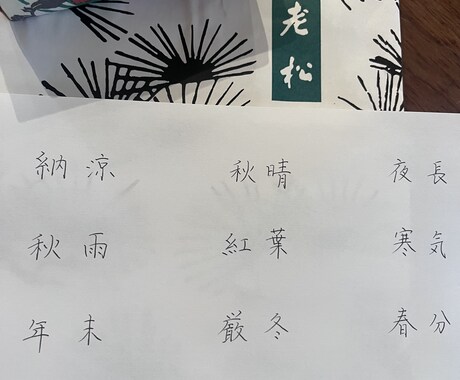 老松
納涼 秋晴 夜長
秋雨 紅葉 寒気
年末 厳冬 春分